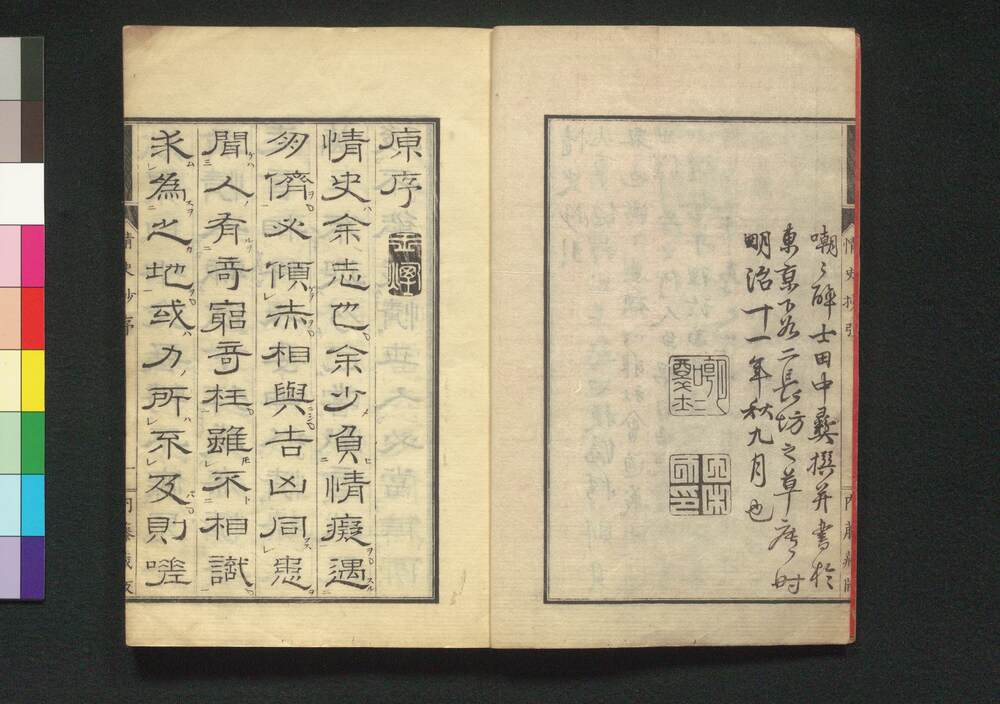 嘲々酔士田中彝撰并書於
東京下谷二長坊之草廬时
明治十一年秋九月也
原序
情史余志也余少負情癡遇
朋儕必傾赤相與吉凶同患
聞人有奇窮奇枉雖不相識
求為之地或力所不及則嗟
情史抄序 一